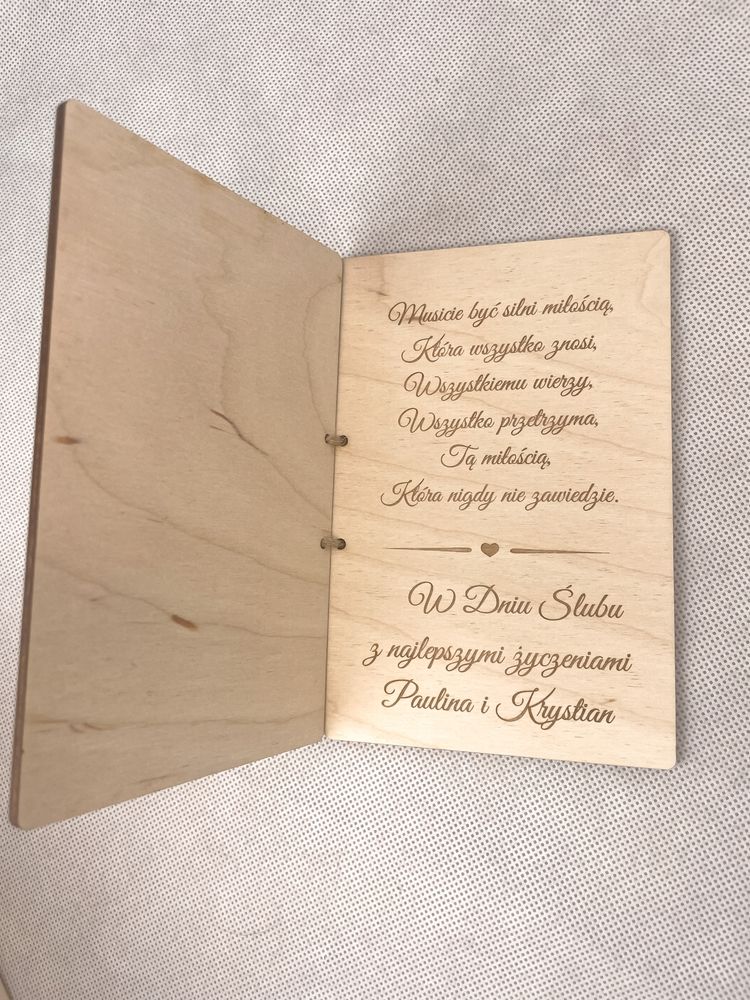 Musicie być silni miłością,
Która wszystko znosi,
Wszystkiemu wierzy,
Wszystko przetrzyma,
Tą miłością,
Która nigdy nie zawiedzie.
W Dniu Ślubu
z najlepszymi życzeniami
Paulina i Krystian